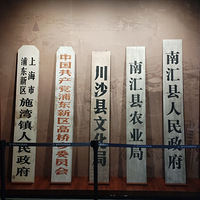 上海市
浦东新区 施湾镇人民政府
中国共产党浦东新区高桥乡委员会
川沙县文化局
南汇县农业局
南汇县人民政府